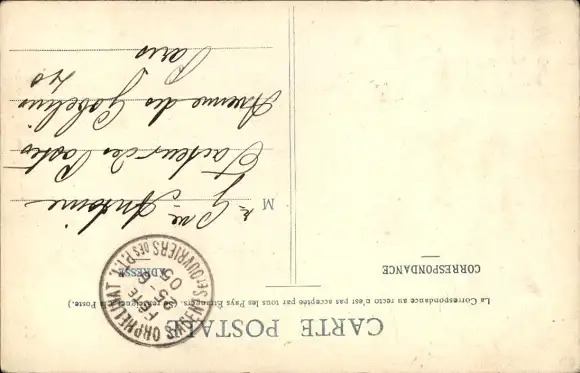 CARTE POSTALE
La Correspondance au recto n'est pas acceptée par tous les Pays Étrangers. (Se renseigner à la Poste).
CORRESPONDANCE
ADRESSE
ORPHELINAT
ET OUVRIERS DES P.T.T.
FÊTE
05
M
Antoine
Facteur des Postes
Avenue des Gobelins
Paris